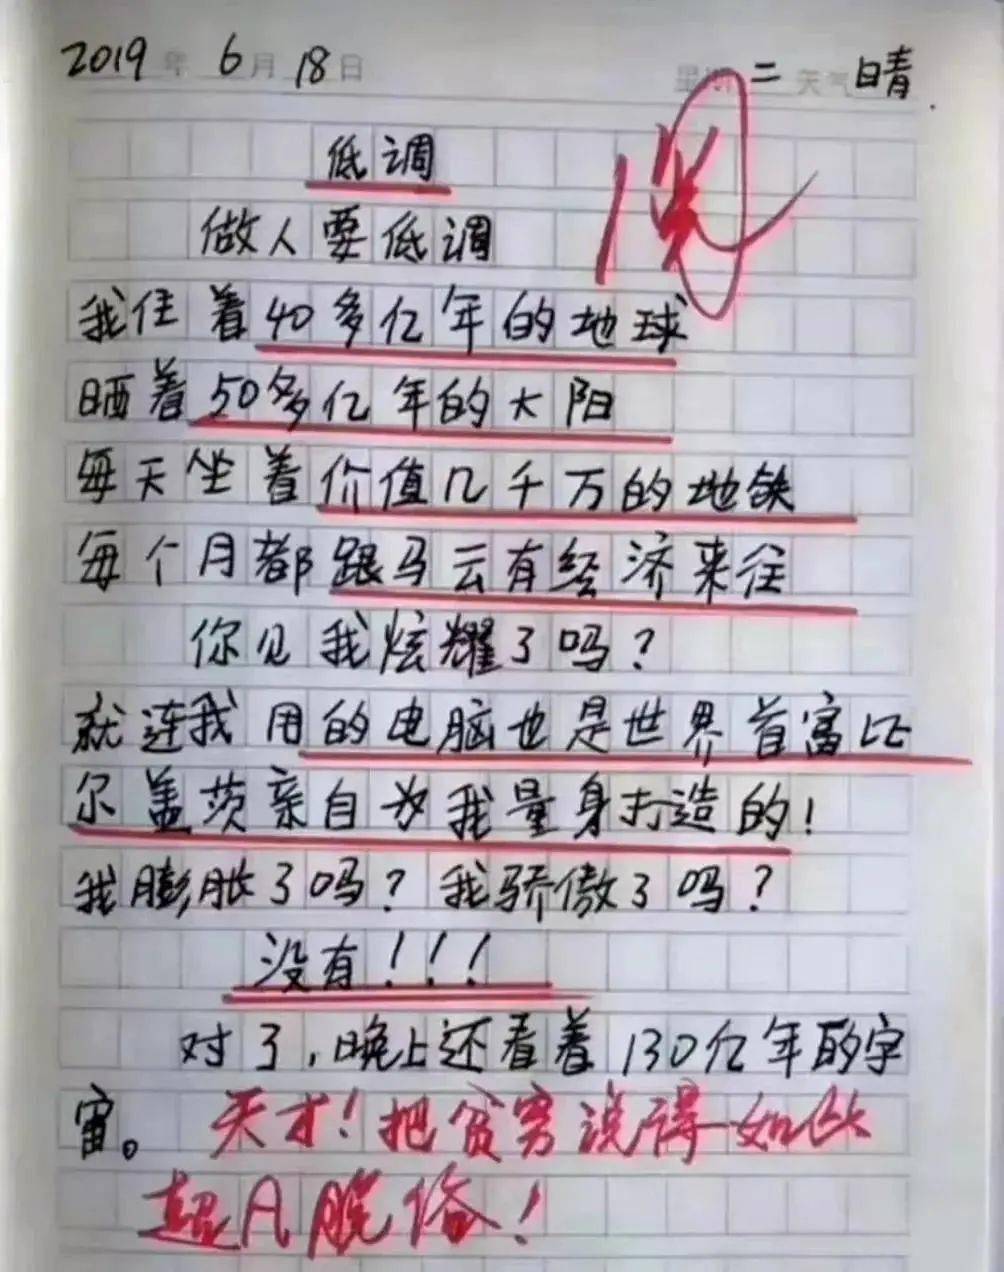 2019年 6月 18日 星期二 天气晴
低调
做人要低调
我住着40多亿年的地球
晒着50多亿年的太阳
每天坐着价值几千万的地铁
每个月都跟马云有经济来往
你见我炫耀了吗？
就连我用的电脑也是世界首富比
尔盖茨亲自为我量身打造的！
我膨胀了吗？我骄傲了吗？
没有！！！
对了，晚上还看着130亿年的宇
宙。天才！把贫穷说得如此
超凡脱俗！